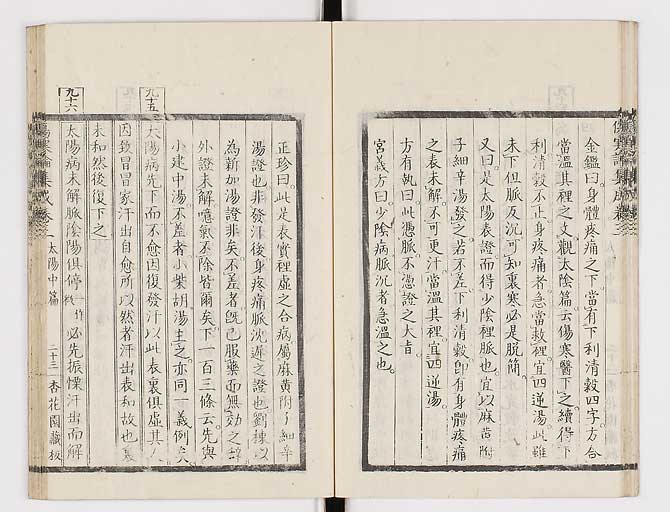 金鑑曰身體疼痛之下當有下利清穀四字方合
當溫其裡之文觀太陰篇云傷寒醫下之續得下
利清穀不止身疼痛者急當救裡宜四逆湯此雖
未下但脈反沉可知裏寒必是脫簡
又曰是太陽表證而得少陰裡脈也宜以麻黃附
子細辛湯發之若不差下利清穀即有身體疼痛
之表未解不可更汗當溫其裡宜四逆湯
方有執曰此憑脈不憑證之大旨
宮義方曰少陰病脈沉者急溫之也
正珍曰此是表實裡虛之合病屬麻黃附子細辛
湯證也非發汗後身疼痛脈沉遲之證也劉棟以
為新加湯證非矣不差者既已服藥而無効之辭
外證未解噫氣不除皆爾矣下一百三條云先與
小建中湯不差者小柴胡湯主之亦同一義例矣
九十五
太陽病先下而不愈因復發汗以此表裏俱虛其人
因致冒冒家汗出自愈所以然者汗出表和故也裏
未和然後復下之
九十六
太陽病未解脈陰陽俱停一作必先振慄汗出而解
傷寒論集成卷 太陽中篇 二十三 杏花園藏板